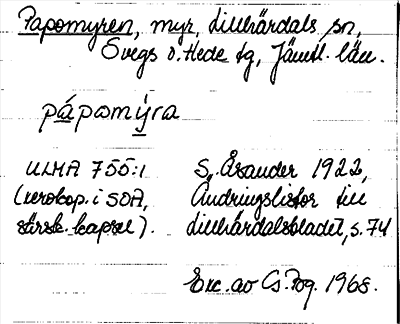 Papomyren, myr, Lillhärdals sn,
Svegs o. Hede tg, Jämtl. län.
pápomýra
ULMA 755:1 S. Åsander 1922,
(xerokop. i SOA, Ändringslistor till
särsk. kapsel). Lillhärdalsbladet, s. 74
Exc. av Cs. Pog. 1968.